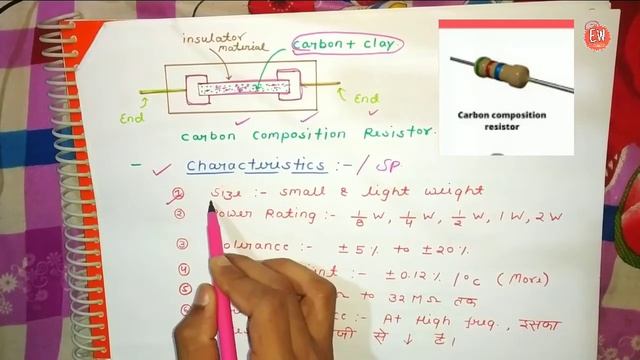 insulator
material
carbon + clay
End
End
EW
Carbon composition
resistor
Carbon Composition Resistor.
- Characteristics :- / SP
① Size :- small & light weight
② Power Rating :- 1/8 W, 1/4 W, 1/2 W, 1 W, 2 W
③ Tolerance :- ±5% to ±20%
④ :- ±0.12% /°C (More)
⑤ Ω to 32 MΩ तक
:- At High freq., इसका
से ↓ है।